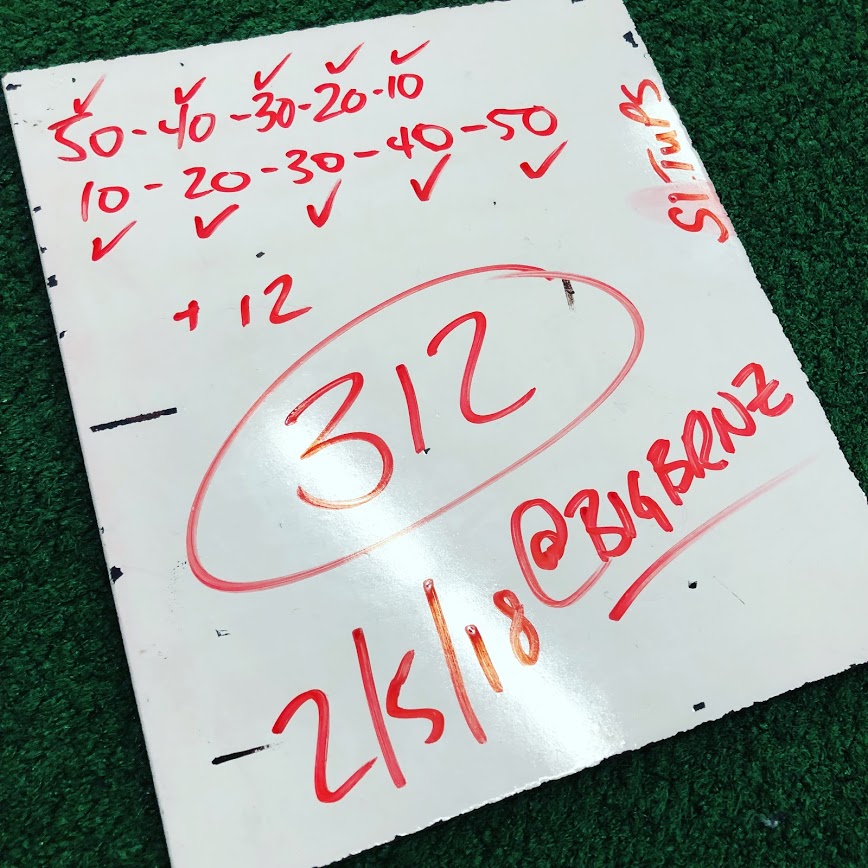 50-40-30-20-10
10-20-30-40-50
SI.TUPS
+12
312
@BIGBRNZ
2/5/18